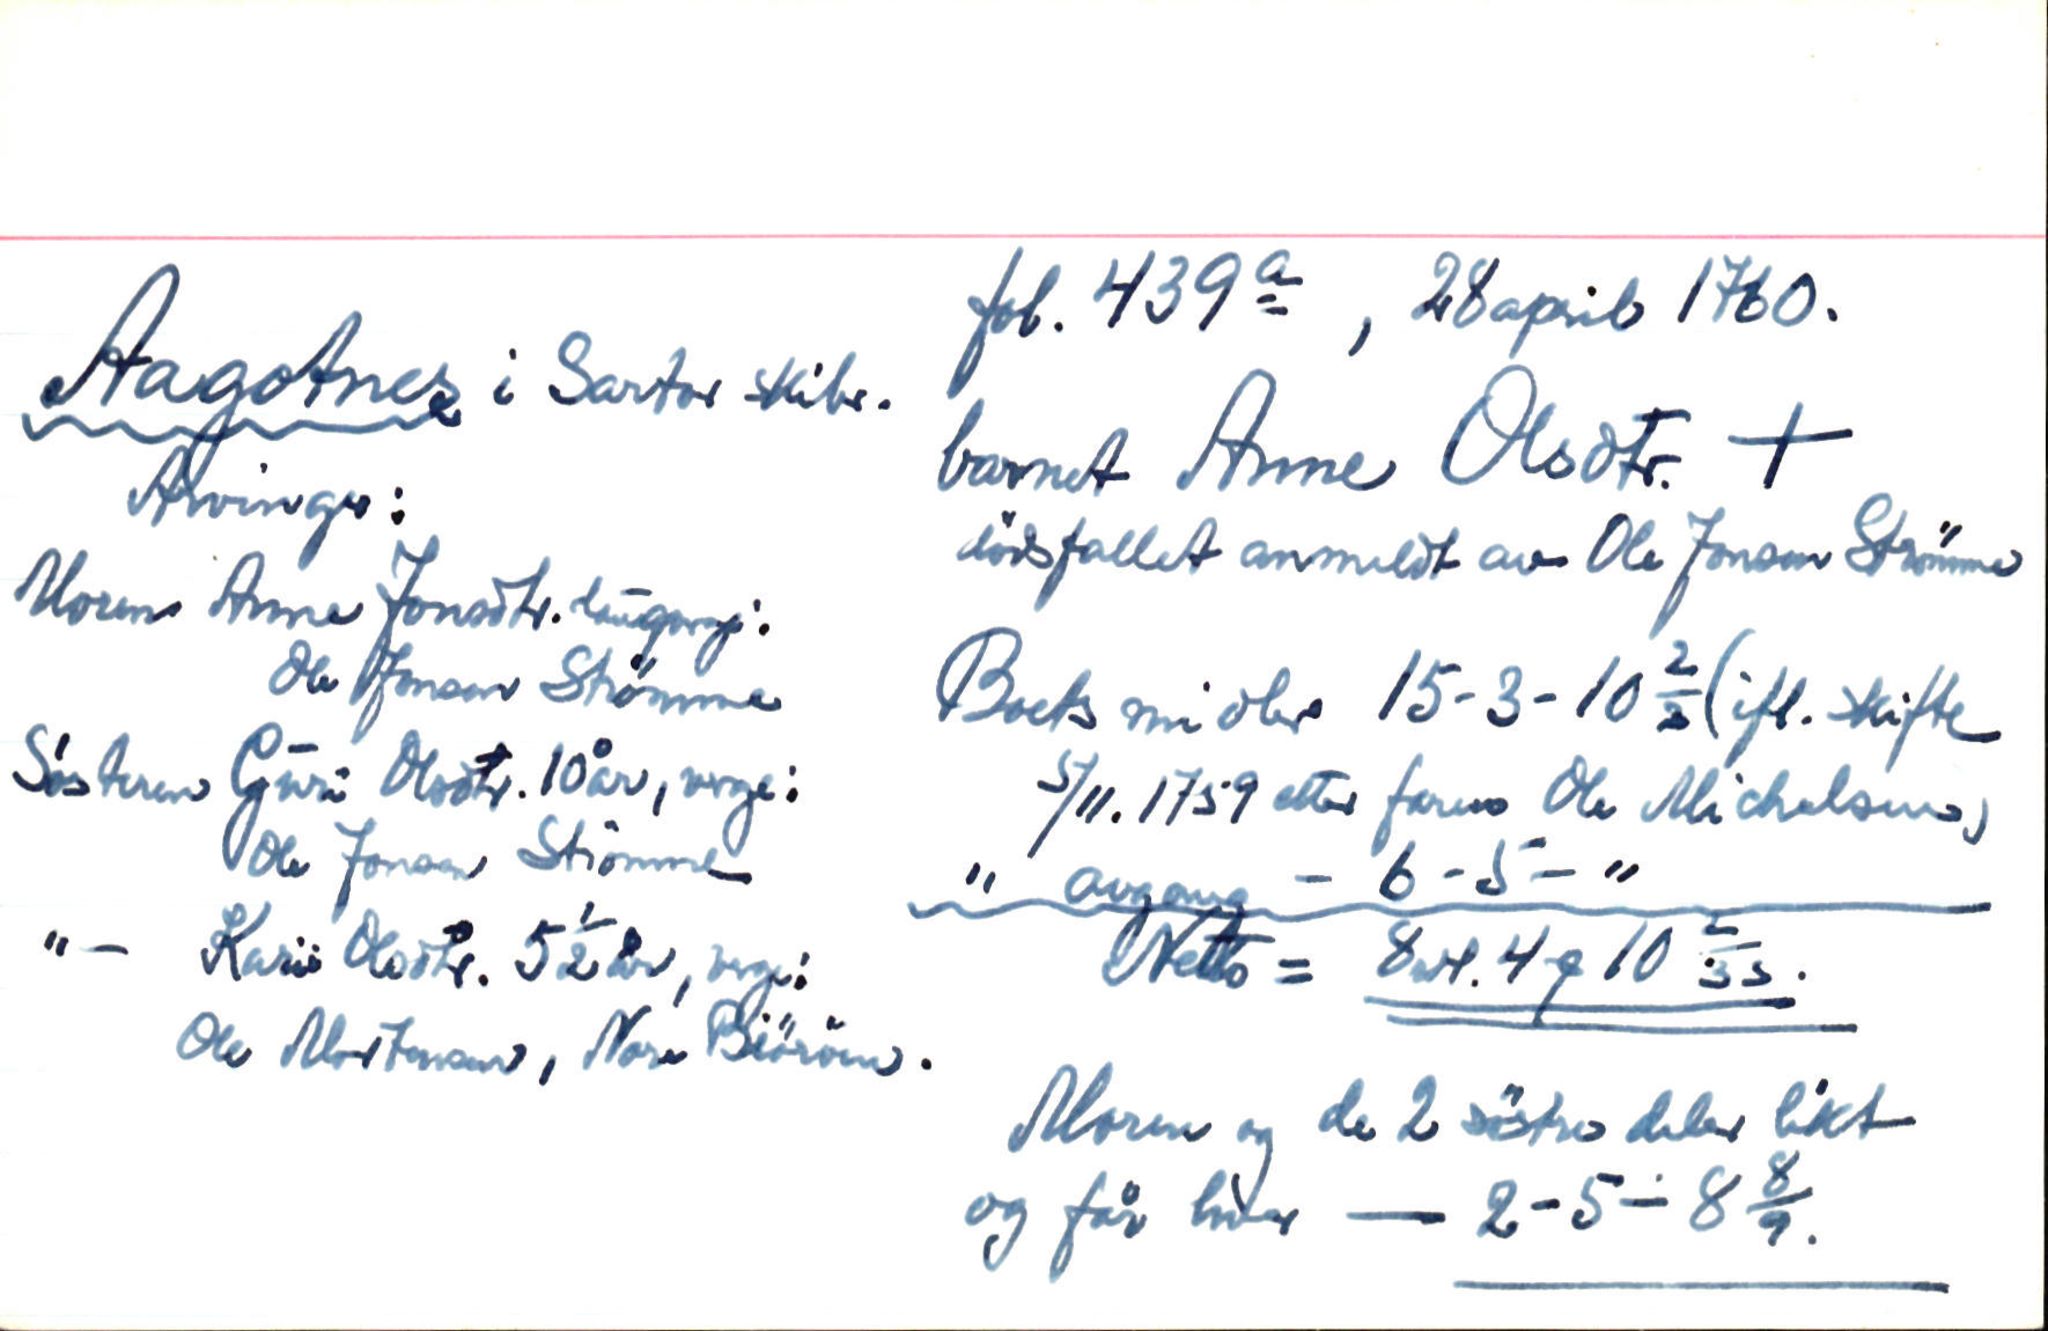 fol. 439 a, 28 april 1760.
Aagotnes i Sartor skibr.
barnet Anne Olsdtr. +
dödsfallet anmeldt av Ole Jonsen Strömme
Arvinger:
Moren Anne Jonsdtr. laugverge:
Ole Jonsen Strömme
Søsteren Guri Olsdtr. 10 år, verge:
Ole Jonsen Strömme
"- Kari Olsdtr. 5 1/2 år, verge:
Ole Mortensen, Nore Biöröen.
Boets midler 15-3-10 2/3 (ifl. skifte
5/11. 1759 etter faren Ole Michelsen)
" avgang - 6-5-"
Netto = 8 rd. 4 ¢ 10 2/3 s.
Moren og de 2 söstre deler likt
og får hver — 2-5-8 8/9.